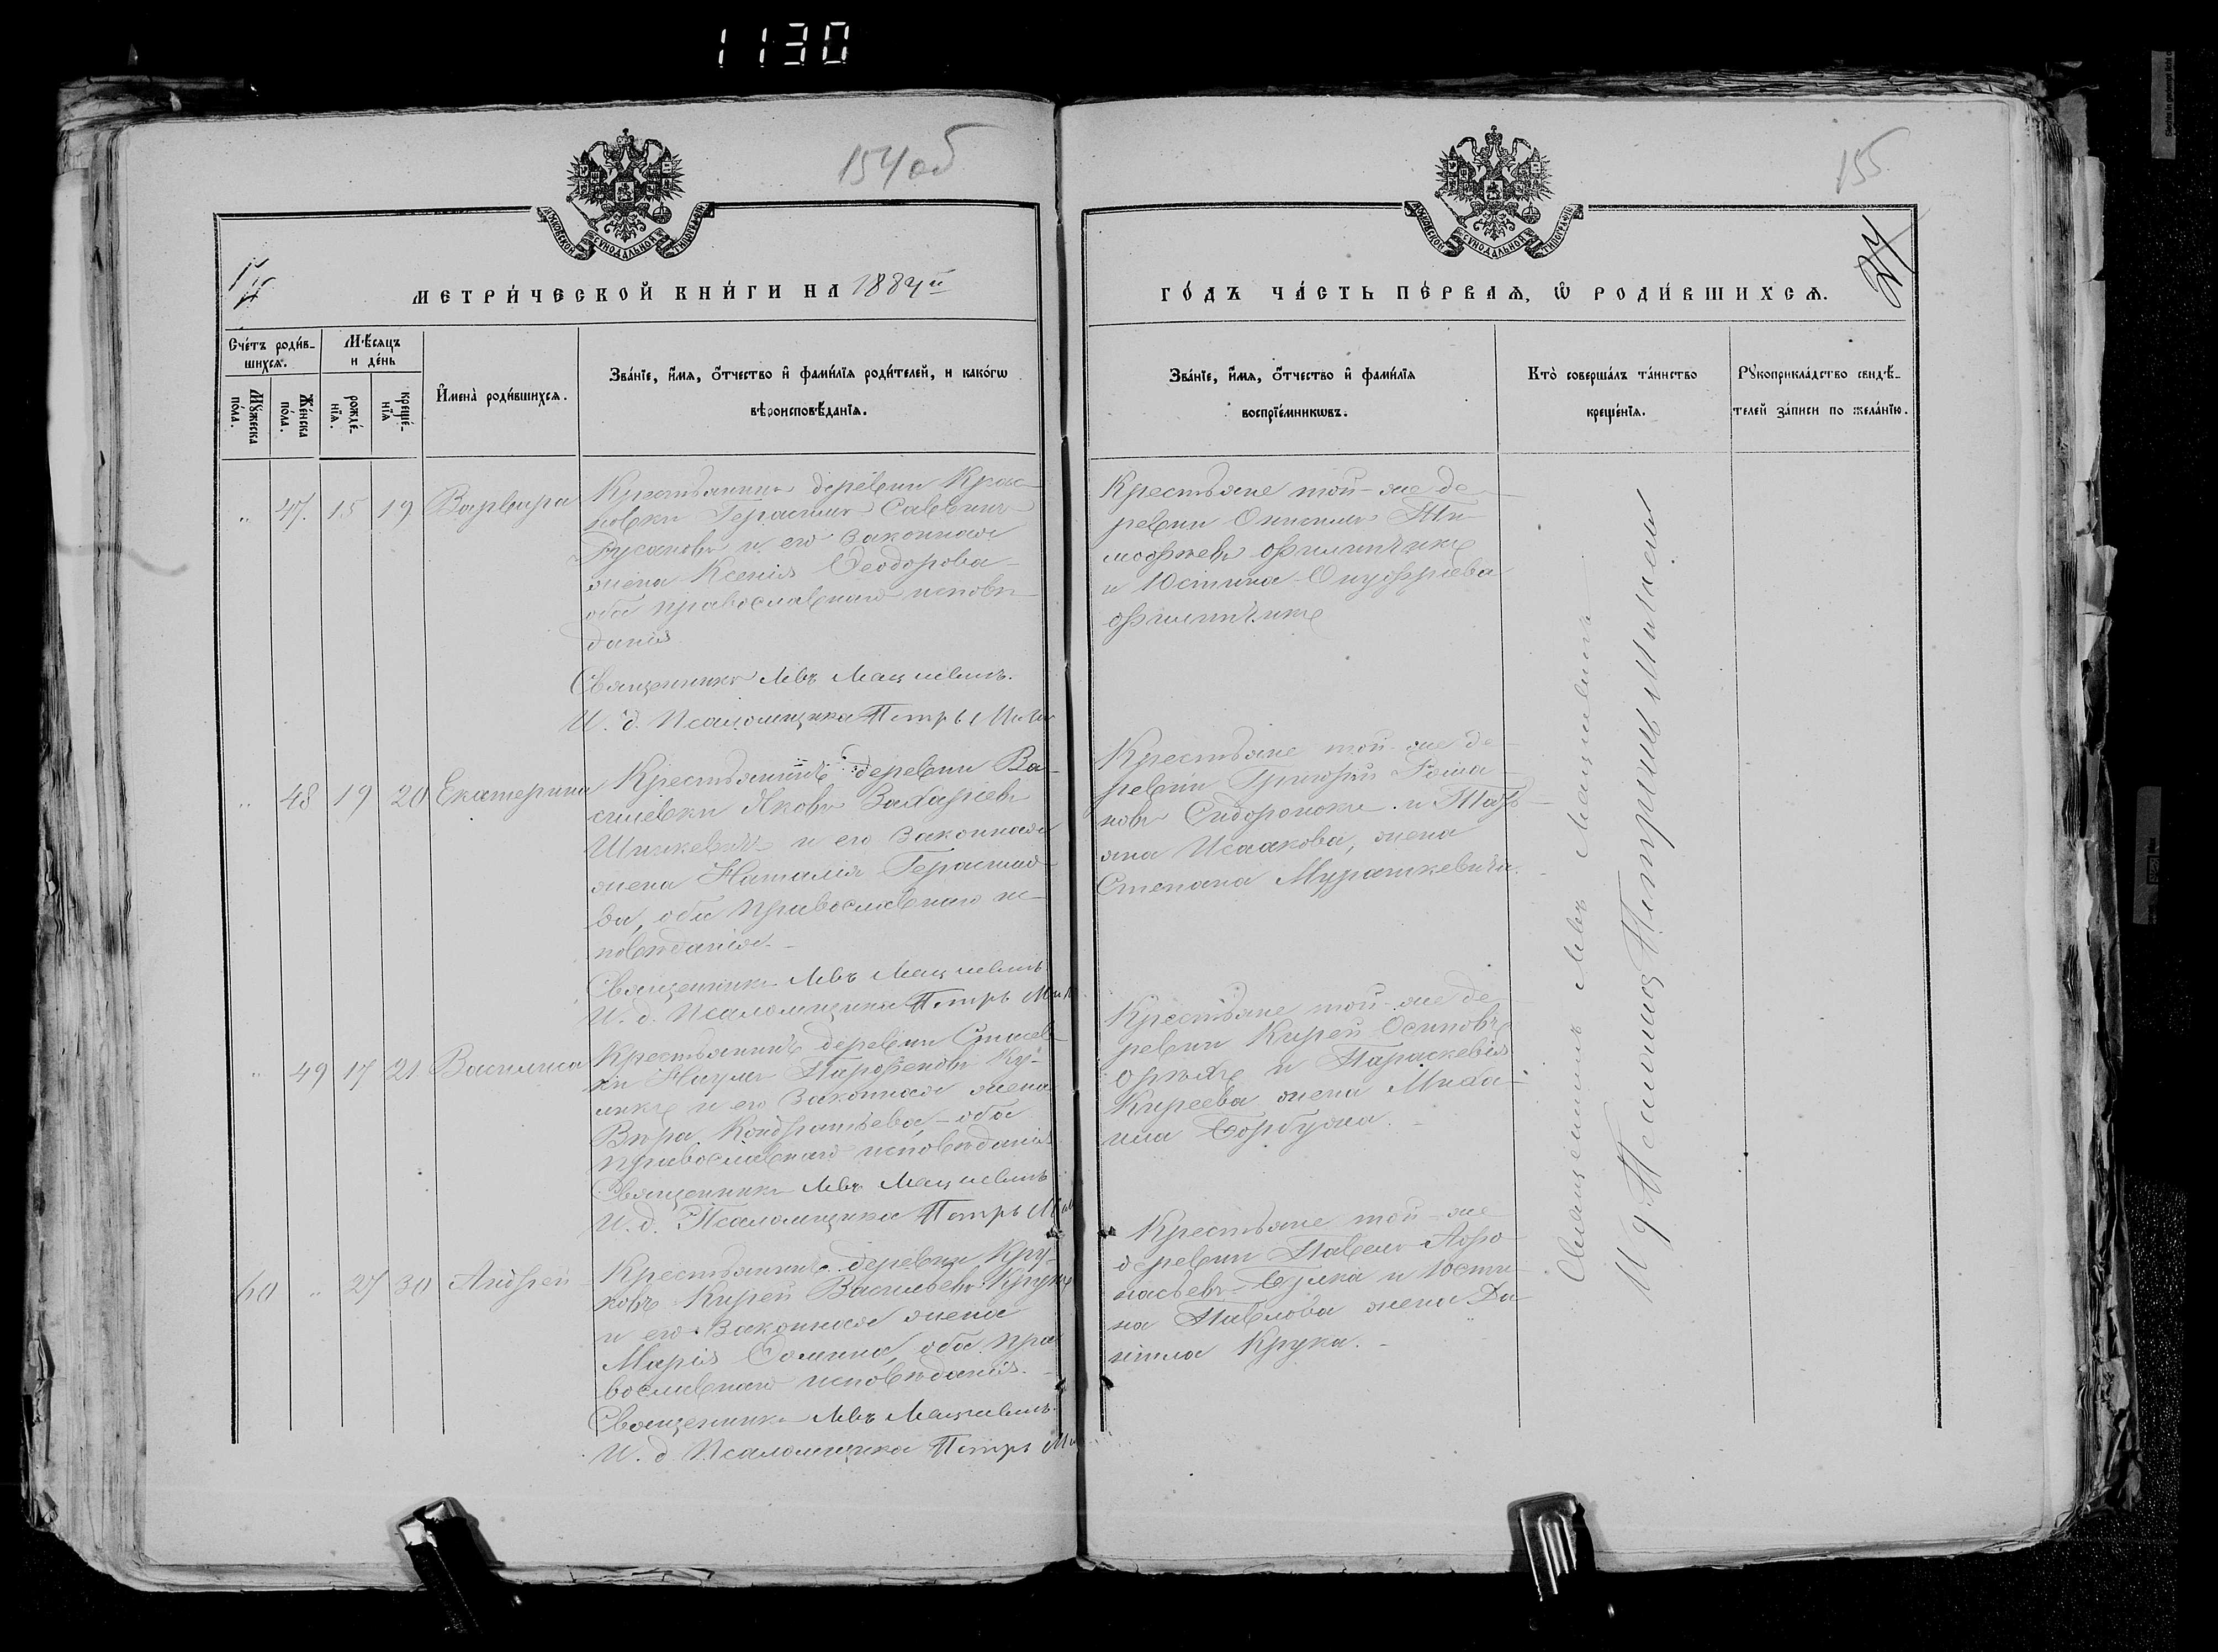 1130
154об
155
МОСКОВСКОЙ СУНОДАЛЬНОЙ ТИПОГРАФІИ
МОСКОВСКОЙ СУНОДАЛЬНОЙ ТИПОГРАФІИ
МЕТРИ́ЧЕСКОЙ КНИ́ГИ НА 1884й
ГО́ДЪ ЧА́СТЬ ПЕ́РВАѦ, Ѿ РОДИ́ВШИХСѦ.
Сче́тъ роди́в-
шихсѧ.
Мѣсяцъ
и де́нь
Мꙋ́жеска
пола.
Же́нска
по́ла.
рожде́-
нїѧ.
креще́-
нїѧ
И҆мена̀ роди́вшихсѧ.
Зва́нїе, и҆́мѧ, ѻ҆́тчество и҆ фами́лїѧ роди́телей, и како́гѡ
вѣроисповѣ́данїѧ.
Зва́нїе, и҆́мѧ, ѻ҆́тчество и҆ фами́лїѧ
воспрїе́мникѡвъ.
Кто̀ соверша́лъ та́инство
креще́нїѧ.
Рꙋкоприкла́дство свидѣ́-
телей за́писи по жела́нїю.
" 47. 15 19 Варвара
Крестьянинъ деревни Крас-
новки Герасимъ Саввинъ
Русаковъ и его законная
жена Ксенія Ѳеодорова
оба православнаго исповѣ-
данія
Священникъ Левъ Мацкевичъ.
И. д. Псаломщика Петръ
Крестьяне той-же де-
ревни Онисимъ Ти-
моѳеевъ
и Юстина Онуфріева
" 48 19 20 Екатерина
Крестьянинъ деревни Ва-
силевки Яковъ Захаріевъ
Шинкевичъ и его законная
жена Наталія Герасимо-
ва, оба православнаго ис-
повѣданія.
Священникъ Левъ Мацкевичъ
И. д. Псаломщика Петръ
Крестьяне той-же де-
ревни Григорій Рома-
новъ Сидоронокъ и Татъ-
яна Исаакова, жена
Степана Мурашкевича.
" 49 17 21 Василиса
Крестьянинъ деревни
Наумъ Парѳеновъ
и его законная жена
Вѣра Кондратьева, оба
православнаго исповѣданія
Священникъ Левъ Мацкевичъ
И. д. Псаломщика Петръ
Крестьяне той-же де-
ревни Кирей Осиповъ
и Параскевія
Киреева жена Миха-
ила Борбужа.
60 " 27 30 Андрей
Крестьянинъ деревни Кру-
ковъ Кирей Васильевъ Крукъ
и его законная жена
Марія Ѳомина, оба пра-
вославнаго исповѣданія.
Священникъ Левъ Мацкевичъ
И. д. Псаломщика Петръ
Крестьяне той-же
деревни Павелъ Аѳо-
насьевъ и Юсти-
на Павлова жена Да-
ніила Крука.
Священникъ Левъ Мацкевичъ
И д Псаломщ Петръ